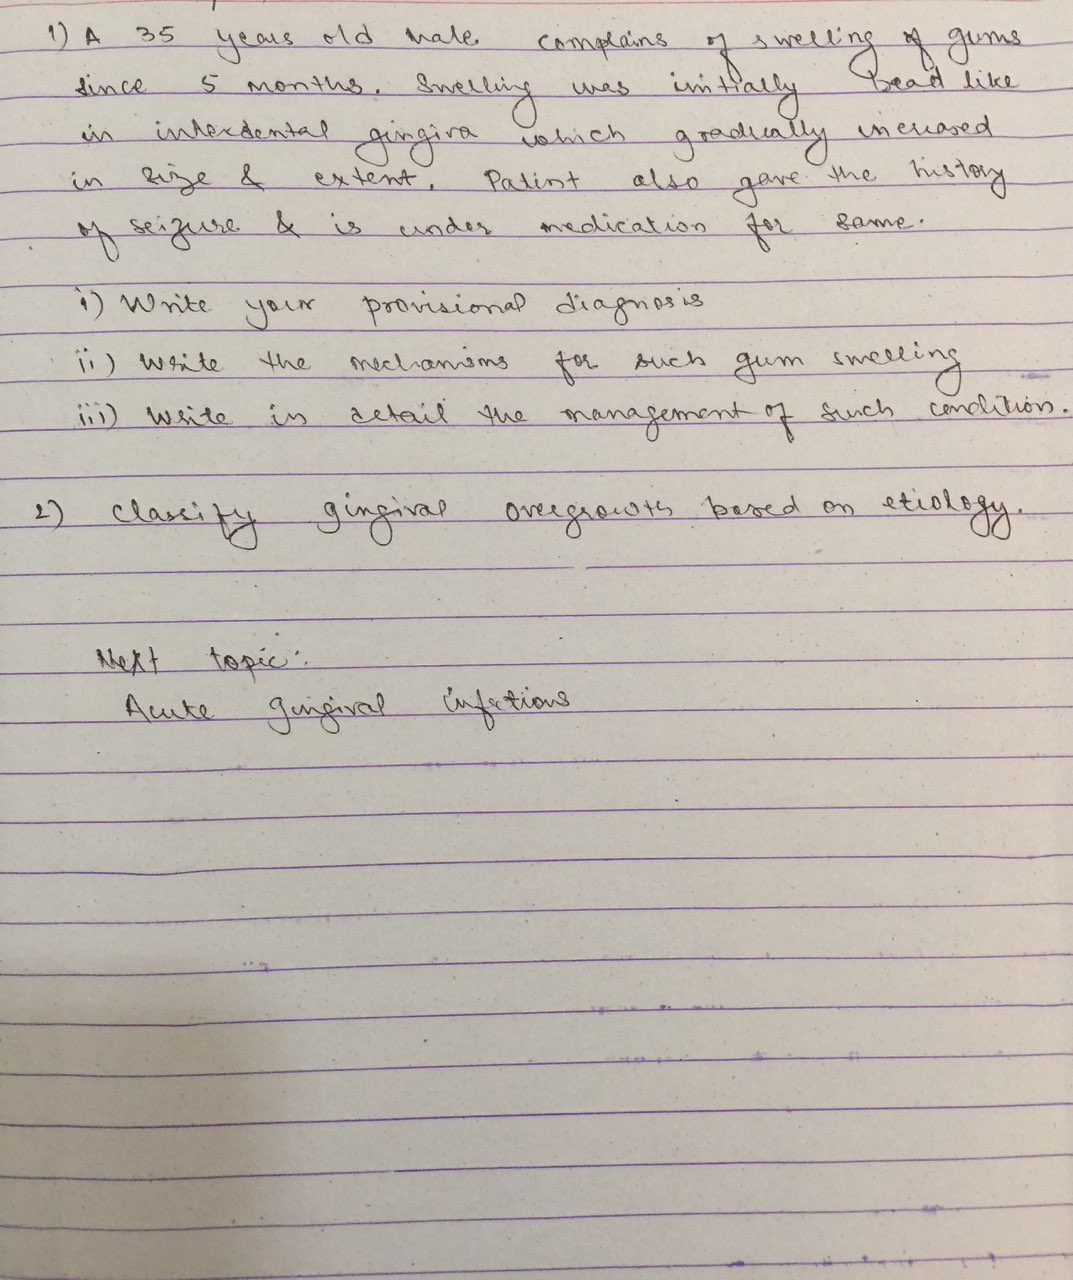 1) A 35 years old male complains of swelling of gums
since 5 months. Swelling was initially bead like
in interdental gingiva which gradually increased
in size & extent. Patint also gave the history
of seizure & is under medication for same.
i) Write your provisional diagnosis
ii) Write the mechanisms for such gum swelling
iii) Write in detail the management of such condition.
2) Classify gingival overgrowth based on etiology.
Next topic:
Acute gingival infections